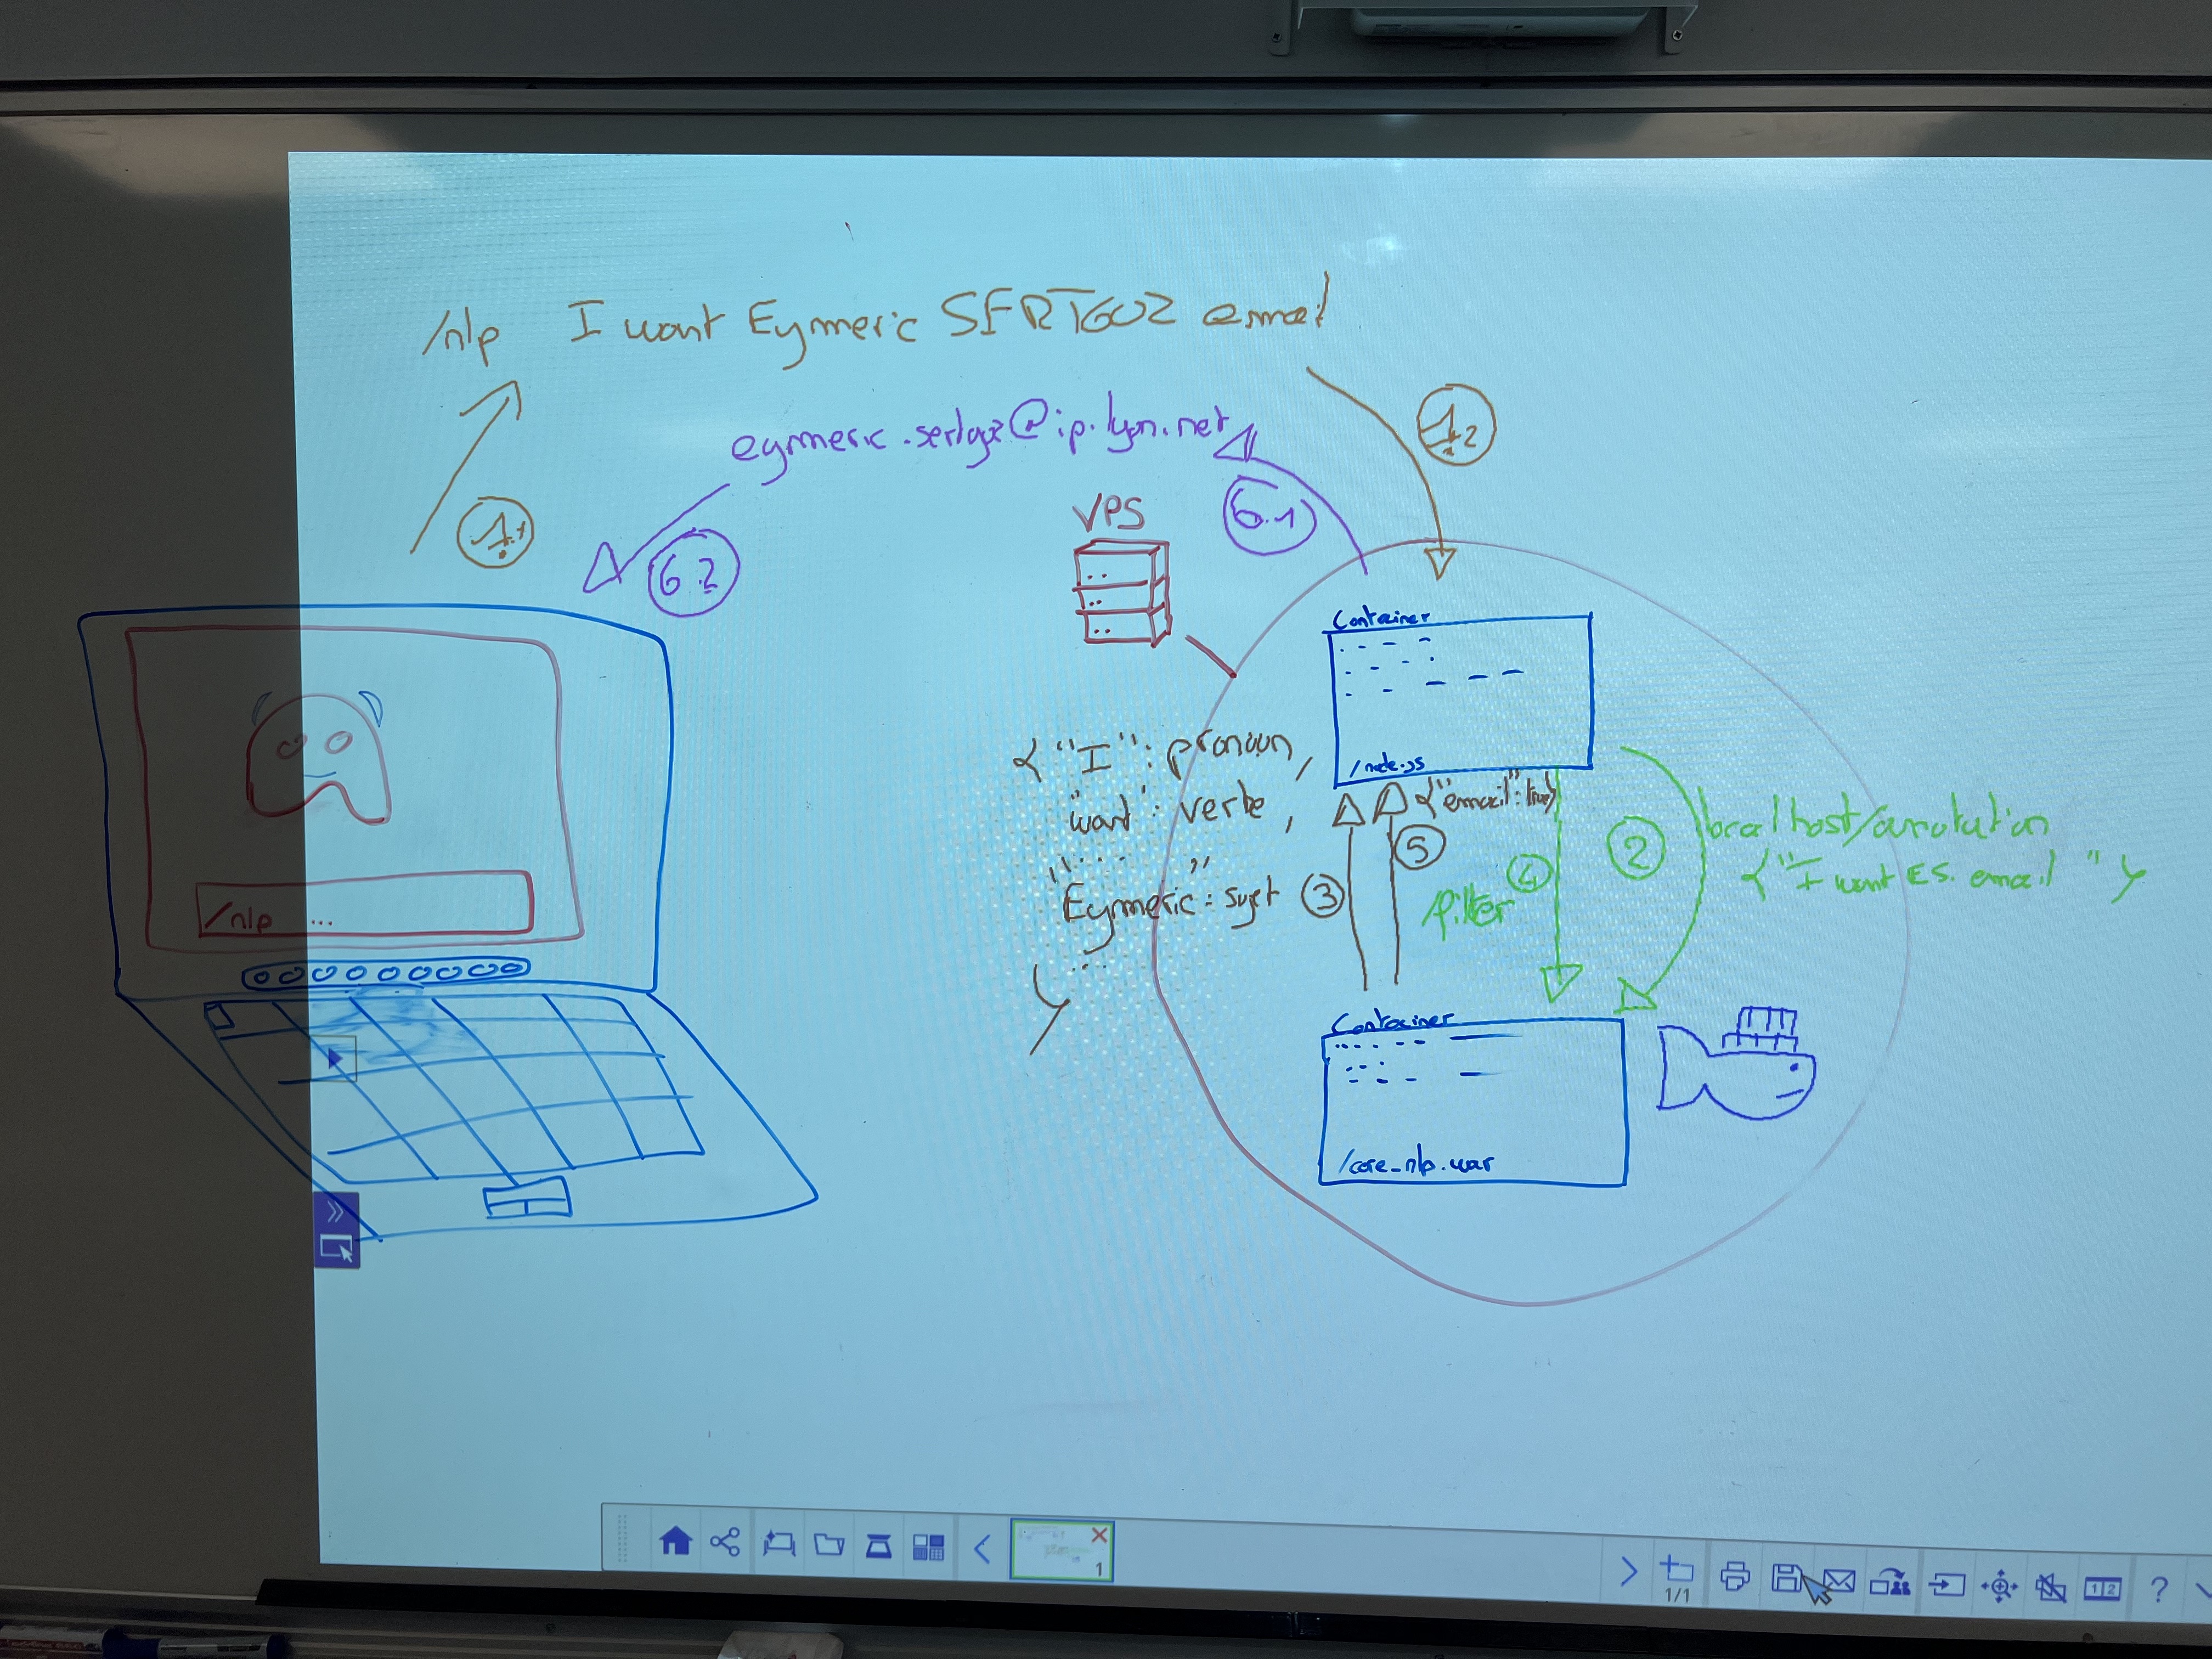 /nlp I want Eymeric SERTGOZ email
1.1
1.2
eymeric.sertgoz@ip.lyon.net
6.1
6.2
VPS
Container
/node.js
{"I": pronoun,
"want": verbe,
"..."
"Eymeric": sujet
...
}
3
5
{"email": true}
4
/filter
2
localhost/annotation
{"I want E.S. email"}
Container
/core_nlp.war
/nlp ...
1
1/1
1 2
?